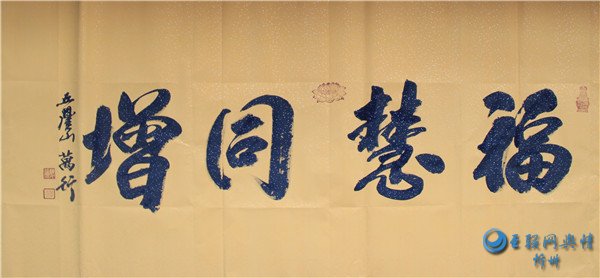 福慧同增
五台山 萬行
互联网舆情
忻州